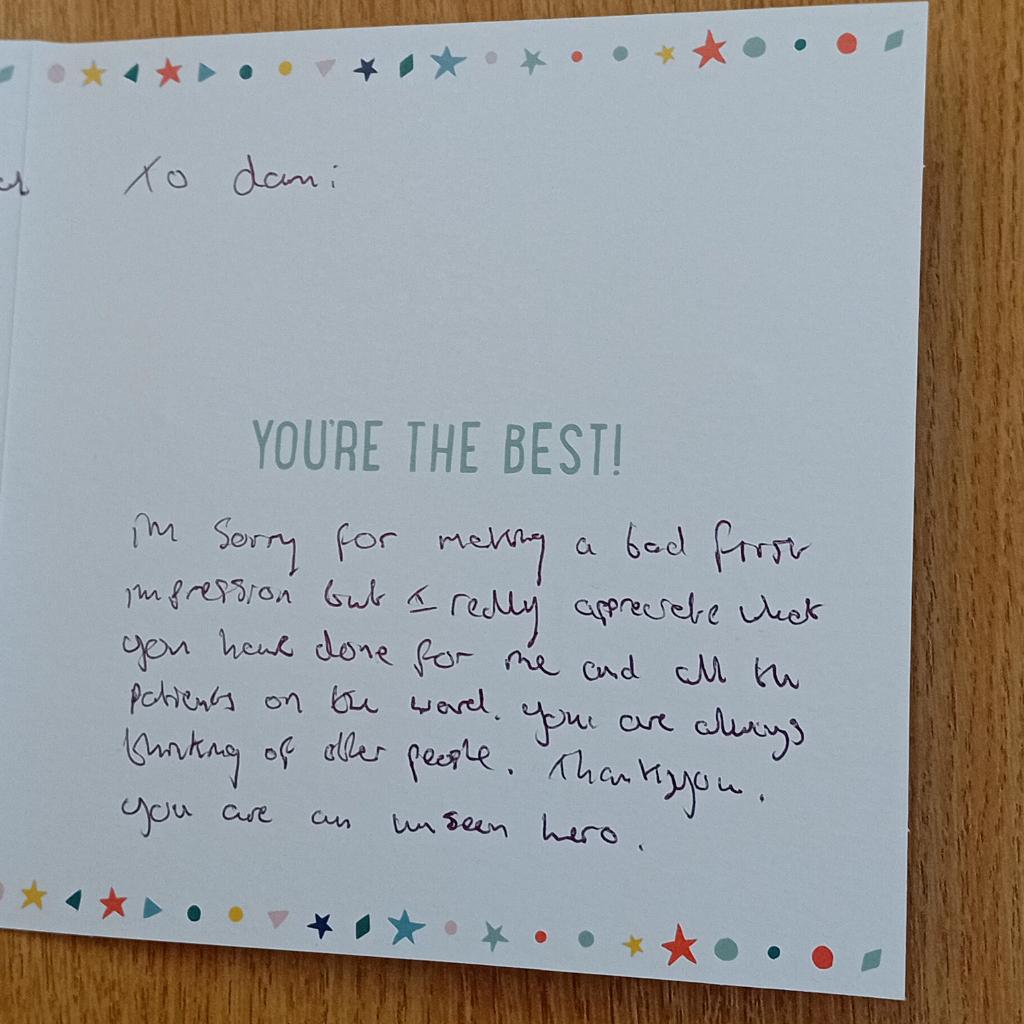 To dani
YOU'RE THE BEST!
im sorry for making a bad first
impression but I really appreciate what
you have done for me and all the
patients on the ward. you are always
thinking of other people. Thankyou.
you are an unseen hero.